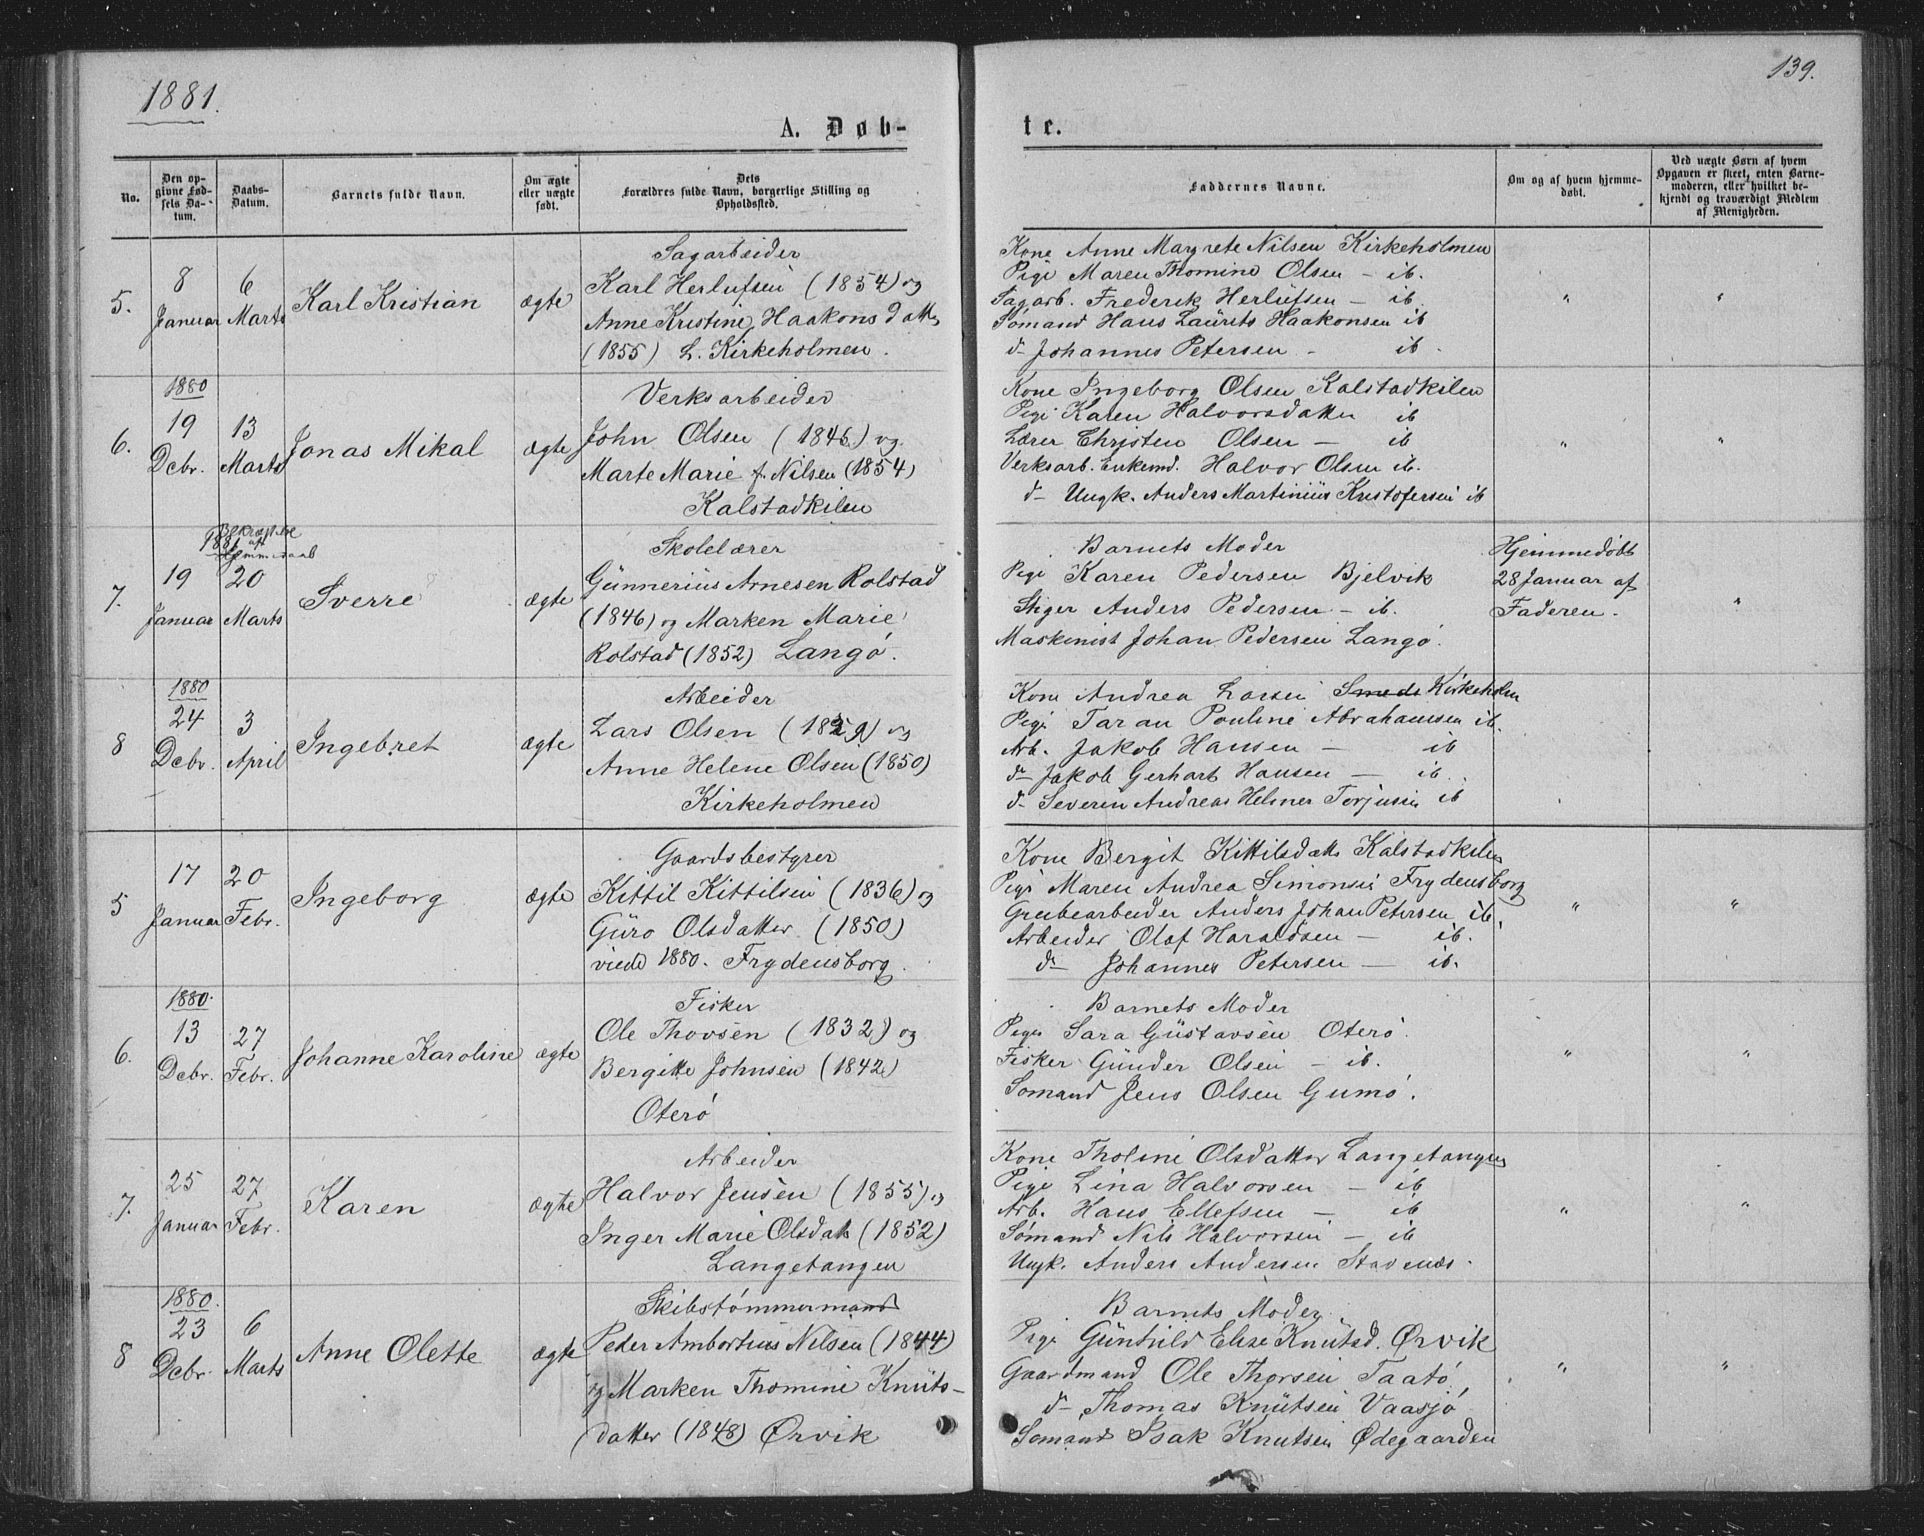 1881.
139.
A. Døb-
te.
No.
Den op-
givne Fød-
sels Da-
tum.
Daabs-
Datum.
Barnets fulde Navn.
Om ægte
eller uægte
født.
Dets
Forældres fulde Navn, borgerlige Stilling og
Opholdssted.
Faddernes Navne.
Om og af hvem hjemme-
døbt.
Ved uægte Børn af hvem
Opgaven er skeet, enten Barne-
moderen, eller hvilket be-
kjendt og troværdigt Medlem
af Menigheden.
5.
8
Januar
6
Marts
Karl Kristian
ægte
Sagarbeider
Karl Herlufsen (1854) og
Anne Kristine Haakonsdatt
(1855) L. Kirkeholmen.
Kone Anne Margrete Nilsen Kirkeholmen
Pige Maren Thomine Olsen - ib.
Sagarb. Frederik Herlufsen - ib.
Sømand Hans Laurits Haakonsen ib
d- Johannes Petersen - ib.
"
"
6.
1880
19
Debr.
13
Marts
Jonas Mikal
ægte
Verksarbeider
John Olsen (1845) og
Marte Marie f. Nilsen (1854)
Kalstadkilen
Kone Ingeborg Olsen Kalstadkilen
Pige Karen Halvorsdatter ib
Lærer Christen Olsen - ib
Verksarb. Enkemd. Halvor Olsen ib.
d- Ungk. Anders Martinius Kristofersen ib
"
"
7.
1881
19
Januar
Bekræftelse
af
Hjemmedaab
20
Marts
Sverre
ægte
Skolelærer
Gunnerius Arnesen Rolstad
(1846) og Marken Marie
Rolstad (1852) Langø.
Barnets Moder
Pige Karen Pedersen Bjelvik
Stiger Anders Pedersen - ib.
Maskinist Johan Pedersen Langø.
Hjemmedøbt
28 Januar af
Faderen.
"
8
1880
24
Debr.
3
April
Ingebret
ægte
Arbeider
Lars Olsen og
Anne Helene Olsen (1850)
Kirkeholmen
Kone Andrea Larsen Smeds Kirkeholm
Pige Taran Pouline Abrahamsen ib.
Arb. Jakob Hansen - ib
d- Jakob Gerhart Hansen - ib.
d- Severin Andreas Helmer Torjusen ib
5
17
Januar
20
Febr.
Ingeborg
ægte
Gaardsbestyrer
Kittil Kittilsen (1836) og
Guro Olsdatter (1850)
viede 1880. Frydensborg.
Kone Bergit Kittilsdatt Kalstadkilen
Pige Maren Andrea Simonsen Frydensborg
Grubearbeider Anders Johan Petersen ib.
Arbeider Olaf Haraldsen - ib.
d- Johannes Petersen - ib.
"
"
6.
1880.
13
Debr.
27
Febr.
Johanne Karoline
ægte
Fisker
Ole Thovsen (1832) og
Bergitte Johnsen (1842)
Oterø
Barnets Moder
Pige Sara Gustavsen Oterø.
Fisker Gunder Olsen - ib.
Sømand Jens Olsen Gumø.
"
"
7.
25
Januar
27
Febr.
Karen
ægte
Arbeider
Halvor Jensen (1855) og
Inger Marie Olsdatt (1852)
Langetangen
Kone Tholine Olsdatter Langetangen
Pige Lina Halvorsen - ib
Arb. Hans Ellefsen - ib
Sømand Nils Halvorsen - ib
Ungk. Anders Andersen Stavenæs.
"
"
8
1880.
23
Debr.
6
Marts
Anne Olette
ægte
Skibstømmermand
Peder Ambortius Nilsen (1844)
og Marken Thomine Knuts-
datter (1848) Ørvik
Barnets Moder
Pige Gunhild Elise Knutsd. Ørvik
Gaardmand Ole Thorsen Taatø
d- Thomas Knutsen Vaasjø
Sømand Isak Knutsen Ødegaarden
"
"